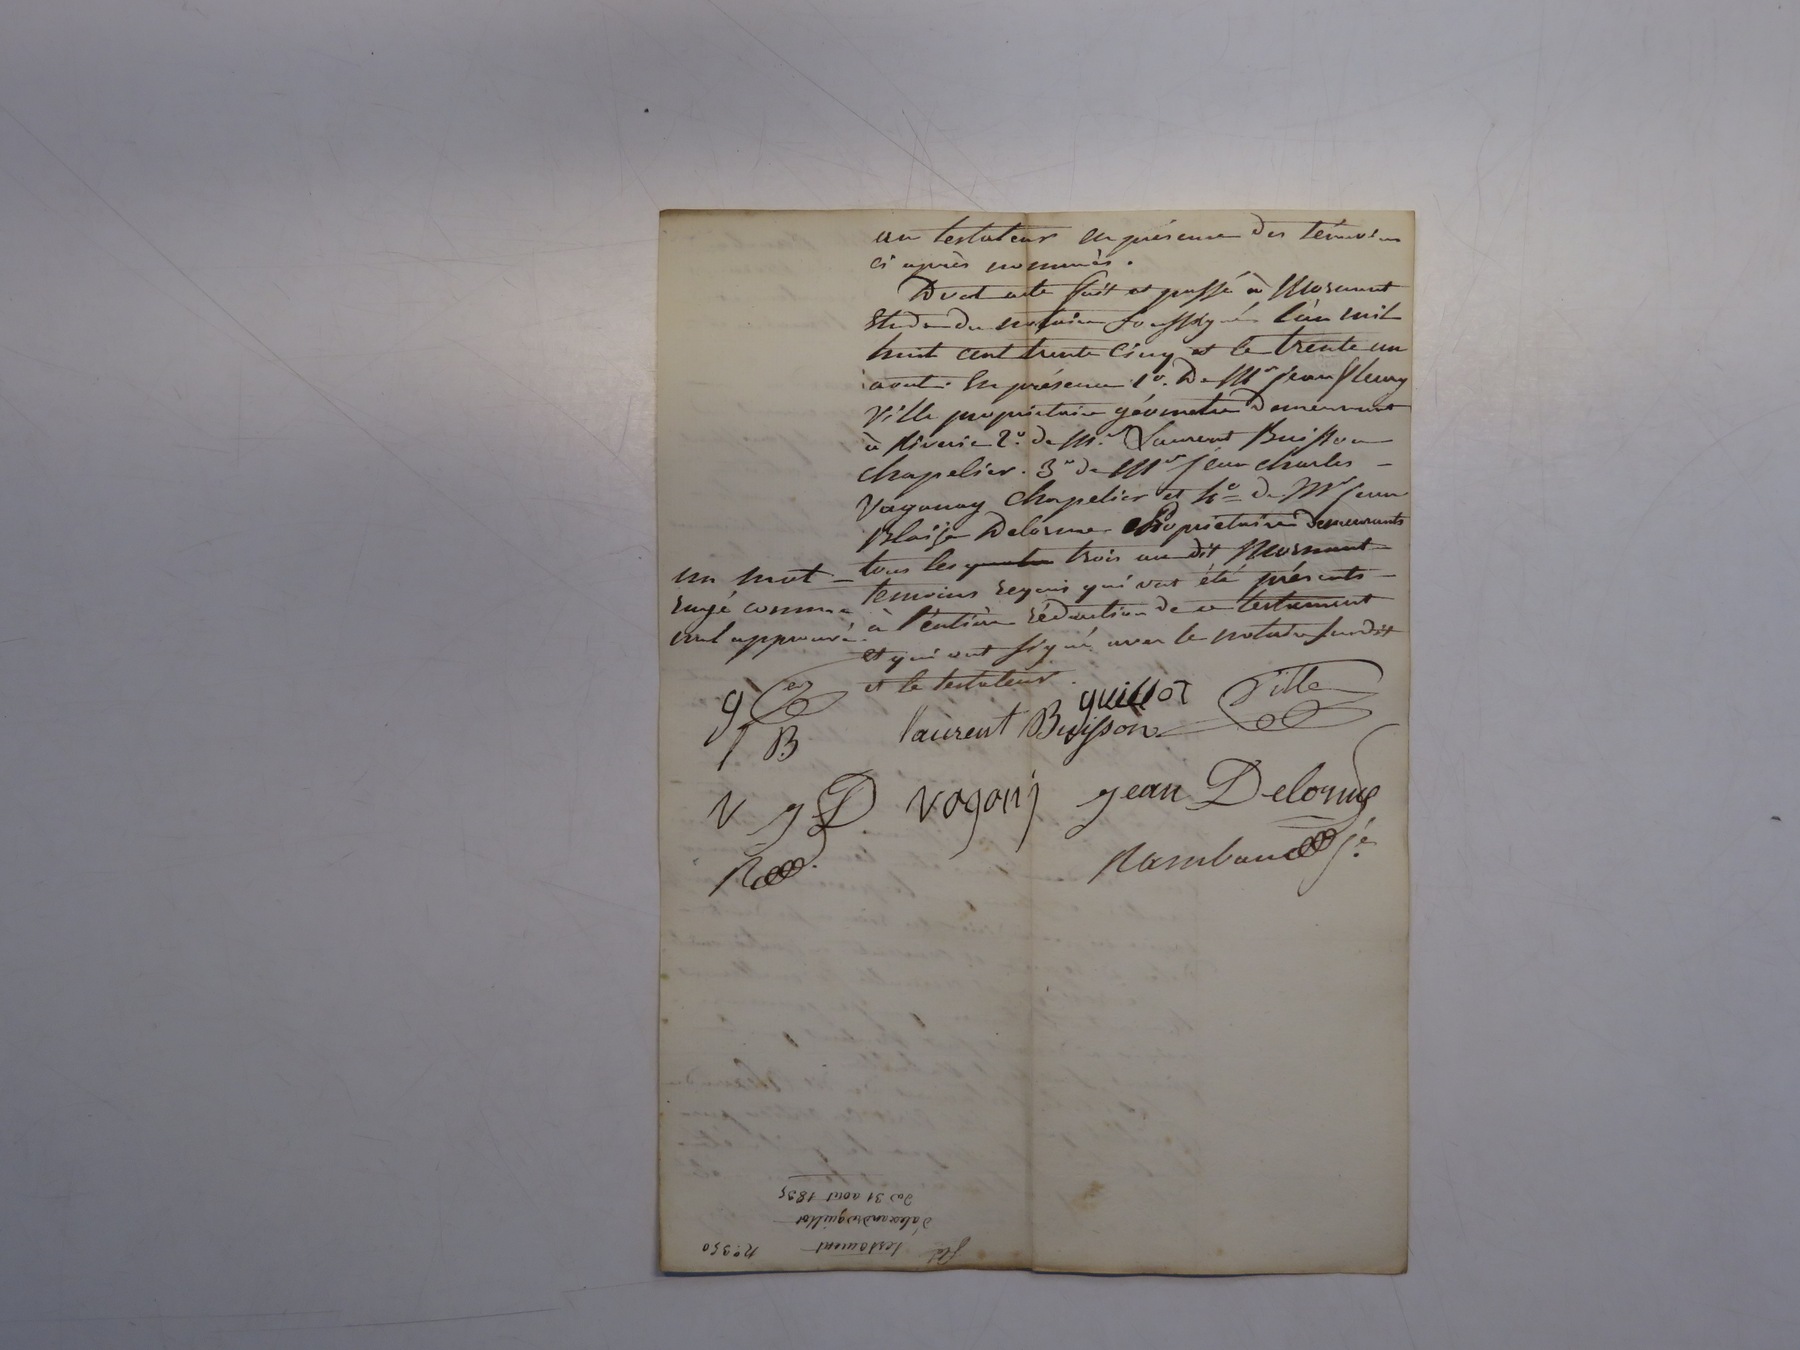 au testateur en présence des témoins
ci après nommés.
Dont acte fait et passé à Mornant
Etude du notaire soussigné l'an mil
huit cent trente cinq et le trente un
aout. En présence 1º. De Mr Jean fleury
Ville propriétaire géometre demeurant
à Riverie 2º. de Mr. Laurent Buisson
chapelier. 3º de Mr Jean charles
Vaganay chapelier et 4º de Mr Jean
Blaise Delorme propriétaire demeurants
tous les quatre trois au dit Mornant
temoins requis qui ont été présents
à l'entière rédaction de ce testament
et qui ont signé avec le notaire susdit
et le testateur.
un mot
rayé comme
nul approuvé.
g
guillot Ville
l B laurent Buisson
V j D vagonj jean Delorme
R Rambaud Je
Nº. 350
testament
d'alexandre guillot
Du 31 aout 1835